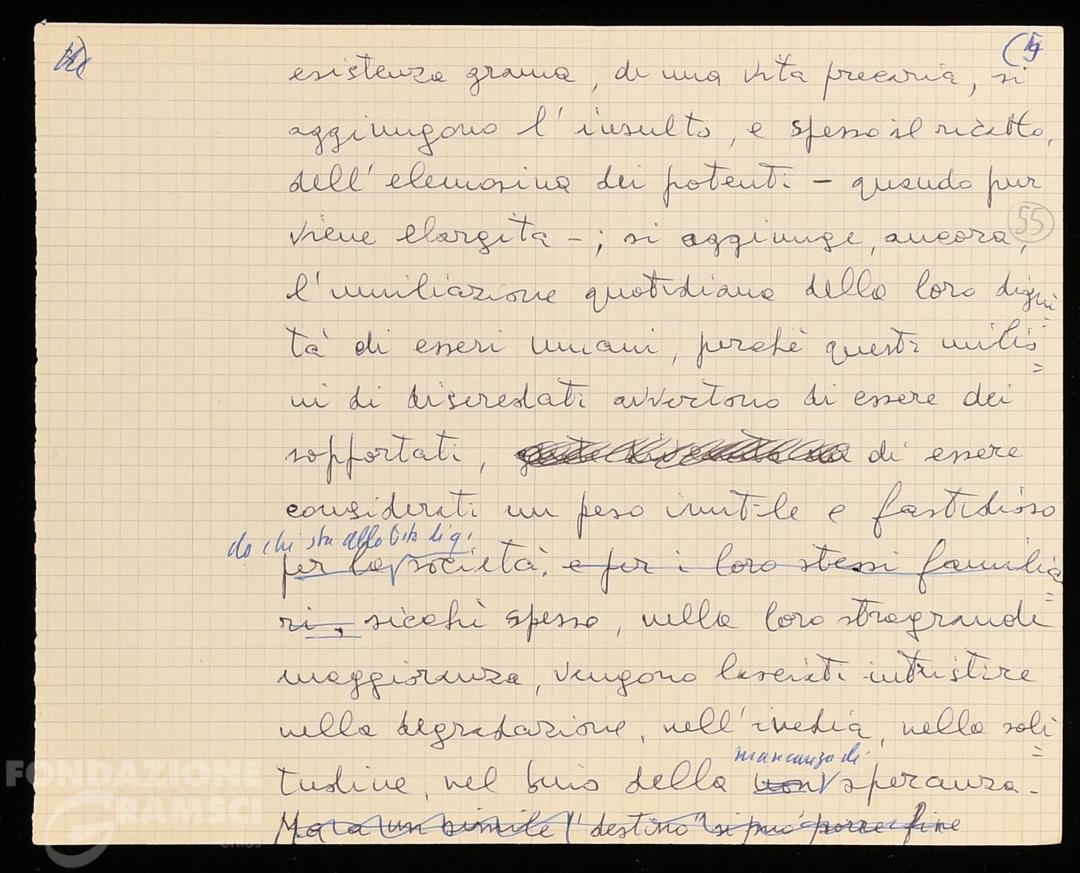 (5
esistenza grama, di una vita precaria, si
aggiungono l'insulto, e spesso il ricatto,
dell'elemosina dei potenti – quando pur
viene elargita – ; si aggiunge, ancora,
55
l'umiliazione quotidiana della loro digni
tà di esseri umani, perché questi milio=
ni di diseredati avvertono di essere dei
sopportati, di essere
considerati un peso inutile e fastidioso
da chi sta alla testa di q.
per la società, e per i loro stessi familia=
ri, sicché spesso, nella loro stragrande
maggioranza, vengono lasciati intristire
nella degradazione, nell'inedia, nella soli=
mancanza di
tudine, nel buio della non speranza.
Ma a un simile "destino" si può porre fine
FONDAZIONE
GRAMSCI
ONLUS